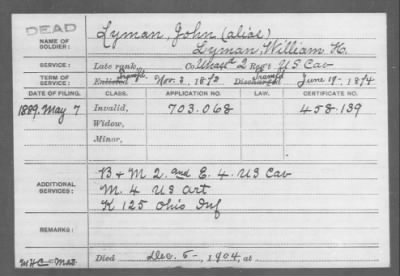 DEAD
NAME OF SOLDIER: Lyman, John (alias)
Lyman, William H.
SERVICE: Late rank, Co. Unasst 2 Reg't US Cav
TERM OF SERVICE: Enlisted Transf'd Nov. 3, 1873 Discharged Transf'd June 19, 1874
DATE OF FILING. CLASS. APPLICATION NO. LAW. CERTIFICATE NO.
1889. May 7 Invalid, 703.068 458.139
Widow,
Minor,
ADDITIONAL SERVICES: B + M 2. and E. 4. US Cav
M. 4 US Art
K 125 Ohio Inf
REMARKS:
Died Dec. 5-, 1904, at